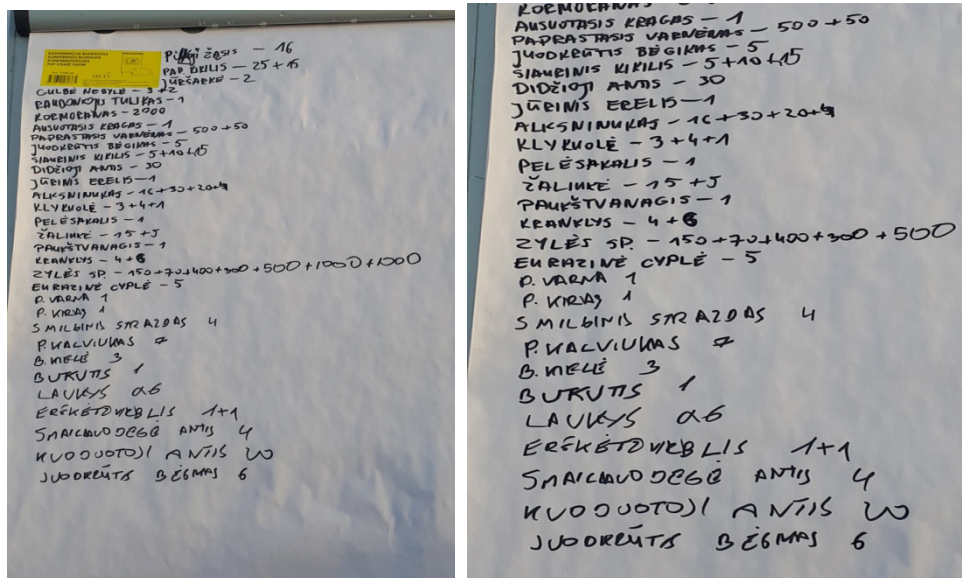 Pilkoji žąsis – 16
PAP. KIKILIS – 25 + 15
JŪRŠARKĖ – 2
GULBĖ NEBYLĖ – 3 + 2
RAUDONKOJIS TULIKAS – 1
KORMORANAS – 2000
AUSUOTASIS KRAGAS – 1
PAPRASTASIS VARNĖNAS – 500 + 50
JUODKRŪTIS BĖGIKAS – 5
ŠIAURINIS KIKILIS – 5 + 10 + 15
DIDŽIOJI ANTIS – 30
JŪRINIS ERELIS – 1
ALKSNINUKAS – 16 + 30 + 20 + 4
KLYKUOLĖ – 3 + 4 + 1
PELĖSAKALIS – 1
ŽALIUKĖ – 15 + 5
PAUKŠTVANAGIS – 1
KRANKLYS – 4 + 6
ZYLĖS SP. – 150 + 70 + 400 + 300 + 500 + 1000 + 1000
EURAZINĖ CYPLĖ – 5
P. VARNA 1
P. KIRAS 1
SMILGINIS STRAZDAS 4
P. KALVIUKAS 7
B. KIELĖ 3
BURUTIS 1
LAUKYS 26
ERŠKĖTŽVIRBLIS 1+1
SMAILIAUODEGĖ ANTIS 4
KUODUOTOJI ANTIS 20
JUODKRŪTIS BĖGIKAS 6
KORMORANAS – 2000
AUSUOTASIS KRAGAS – 1
PAPRASTASIS VARNĖNAS – 500 + 50
JUODKRŪTIS BĖGIKAS – 5
ŠIAURINIS KIKILIS – 5 + 10 + 15
DIDŽIOJI ANTIS – 30
JŪRINIS ERELIS – 1
ALKSNINUKAS – 16 + 30 + 20 + 4
KLYKUOLĖ – 3 + 4 + 1
PELĖSAKALIS – 1
ŽALIUKĖ – 15 + 5
PAUKŠTVANAGIS – 1
KRANKLYS – 4 + 6
ZYLĖS SP. – 150 + 70 + 400 + 300 + 500
EURAZINĖ CYPLĖ – 5
P. VARNA 1
P. KIRAS 1
SMILGINIS STRAZDAS 4
P. KALVIUKAS 7
B. KIELĖ 3
BURUTIS 1
LAUKYS 26
ERŠKĖTŽVIRBLIS 1+1
SMAILIAUODEGĖ ANTIS 4
KUODUOTOJI ANTIS 20
JUODKRŪTIS BĖGIKAS 6